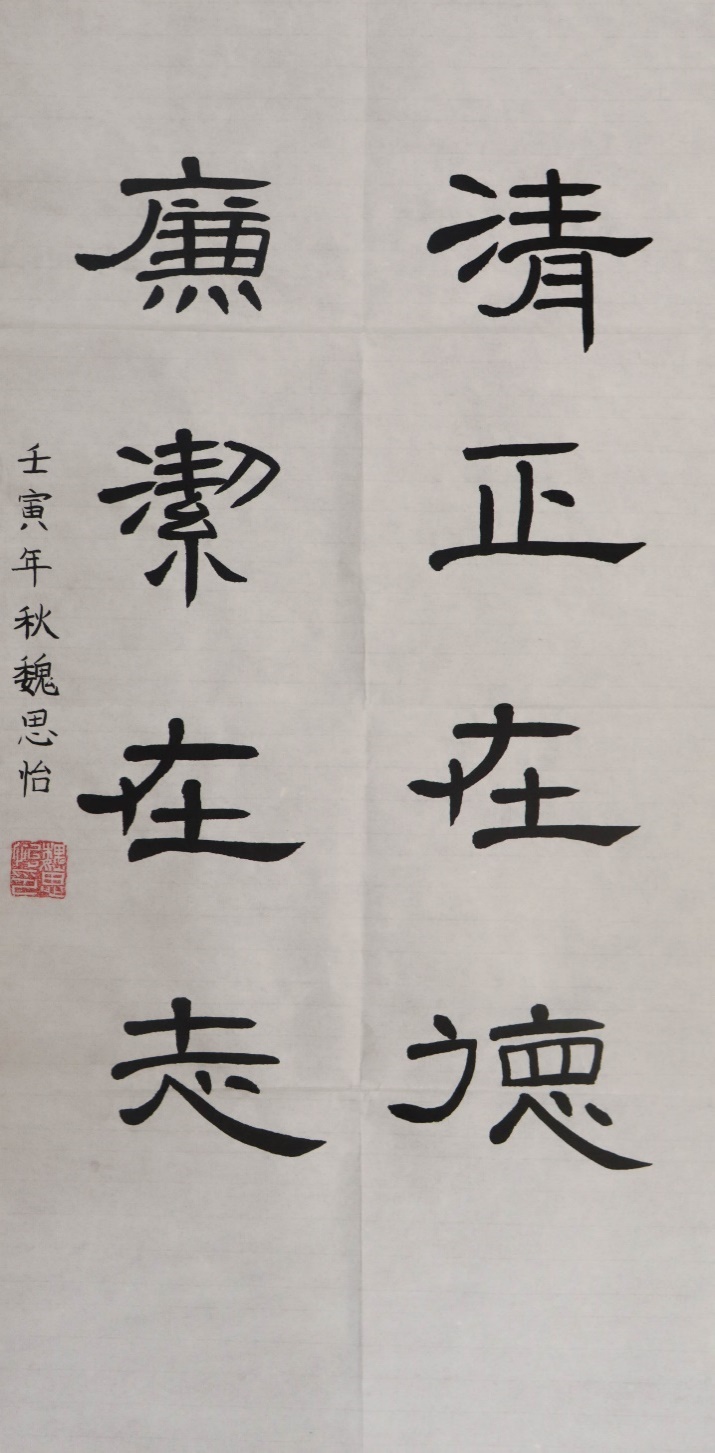 清正在德
廉潔在志
壬寅年秋魏思怡
魏思怡印